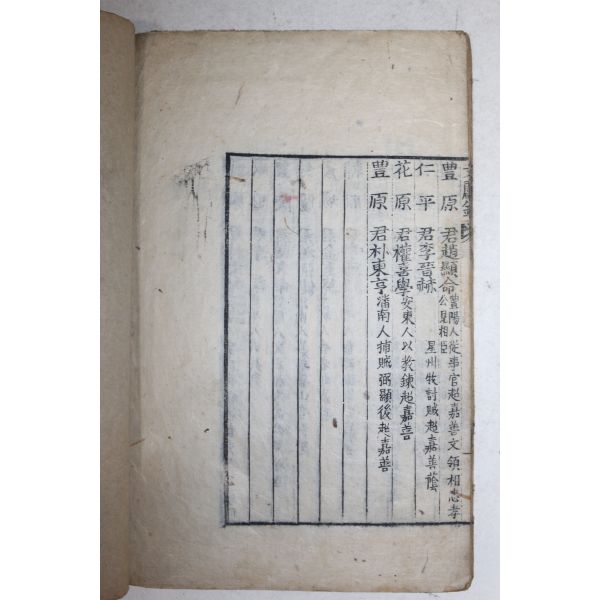 豊原君趙顯命豊陽人從事官超嘉善文領相忠孝
公見相臣
仁平君李晉赫星州牧討賊超嘉善蔭
花原君權喜學安東人以敎鍊超嘉善
豊原君朴東亨潘南人捕賊弼顯後超嘉善